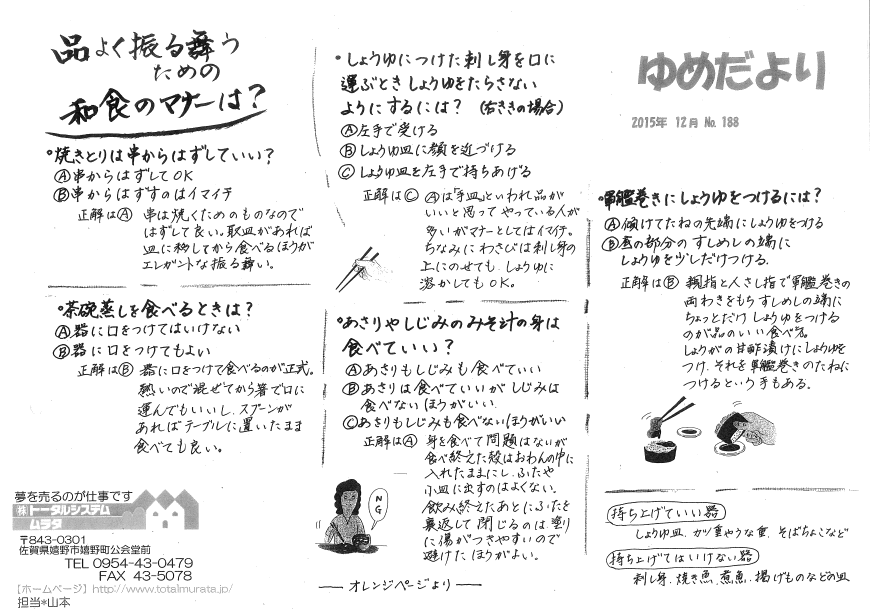 品よく振る舞う
ための
和食のマナーは?
・焼きとりは串からはずしていい?
Ⓐ串からはずしてOK
Ⓑ串からはずすのはイマイチ
正解はⒶ 串は焼くためのものなので
はずして良い。取皿があれば
皿に移してから食べるほうが
エレガントな振る舞い。
・茶碗蒸しを食べるときは?
Ⓐ器に口をつけてはいけない
Ⓑ器に口をつけてもよい
正解はⒷ 器に口をつけて食べるのが正式。
熱いので混ぜてから箸で口に
運んでもいいし、スプーンが
あればテーブルに置いたまま
食べても良い。
夢を売るのが仕事です
㈱トータルシステム
ムラタ
〒843-0301
佐賀県嬉野市嬉野町公会堂前
TEL 0954-43-0479
FAX 43-5078
【ホームページ】http://www.totalmurata.jp/
担当*山本
・しょうゆにつけた刺し身を口に
運ぶときしょうゆをたらさない
ようにするには? (右ききの場合)
Ⓐ左手で受ける
Ⓑしょうゆ皿に顔を近づける
Ⓒしょうゆ皿を左手で持ちあげる
正解はⒸ Ⓐは「手皿」といわれ品が
いいと思ってやっている人が
多いがマナーとしてはイマイチ。
ちなみにわさびは刺し身の
上にのせても、しょうゆに
溶かしてもOK。
・あさりやしじみのみそ汁の身は
食べていい?
Ⓐあさりもしじみも食べていい
Ⓑあさりは食べていいがしじみは
食べないほうがいい
Ⓒあさりもしじみも食べないほうがいい
正解はⒶ 身を食べて問題はないが
食べ終えた殻はおわんの中に
入れたままにし、ふたや
小皿に出すのはよくない。
飲み終えたあとにふたを
裏返して閉じるのは塗り
に傷がつきやすいので
避けたほうがよい。
NG
― オレンジページより ―
ゆめだより
2015年 12月 No. 188
・軍艦巻きにしょうゆをつけるには?
Ⓐ傾けてたねの先端にしょうゆをつける
Ⓑ巻の部分のすしめしの端に
しょうゆを少しだけつける。
正解はⒷ 親指と人さし指で軍艦巻きの
両わきをもちすしめしの端に
ちょっとだけしょうゆをつける
のが品のいい食べ方。
しょうがの甘酢漬けにしょうゆを
つけ、それを軍艦巻きのたねに
つけるという手もある。
持ち上げていい器
しょうゆ皿、カツ重やうな重、そばちょこなど
持ち上げてはいけない器
刺し身、焼き魚、煮魚、揚げものなどの皿